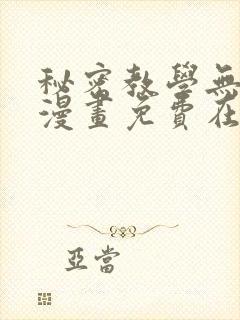 秘密教學無
漫畫免費在
亞當